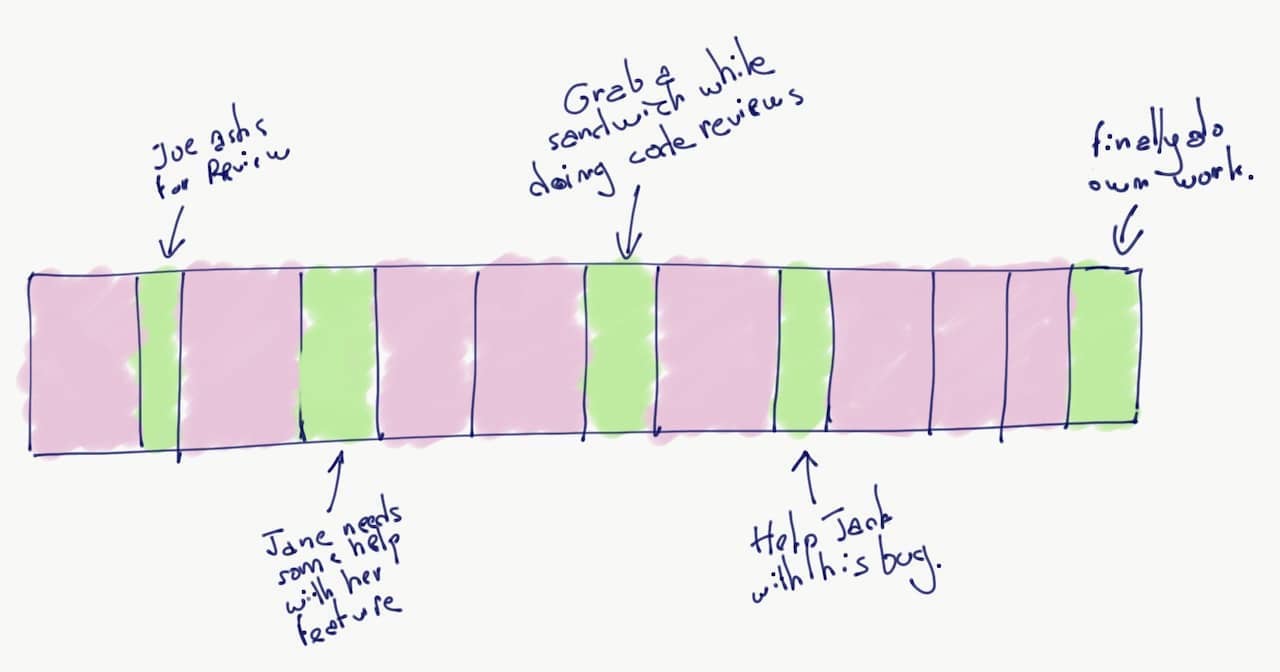 Joe asks
for Review
Grab a
sandwich while
doing code reviews
finally do
own work.
Jane needs
some help
with her
feature
Help Jack
with his bug.